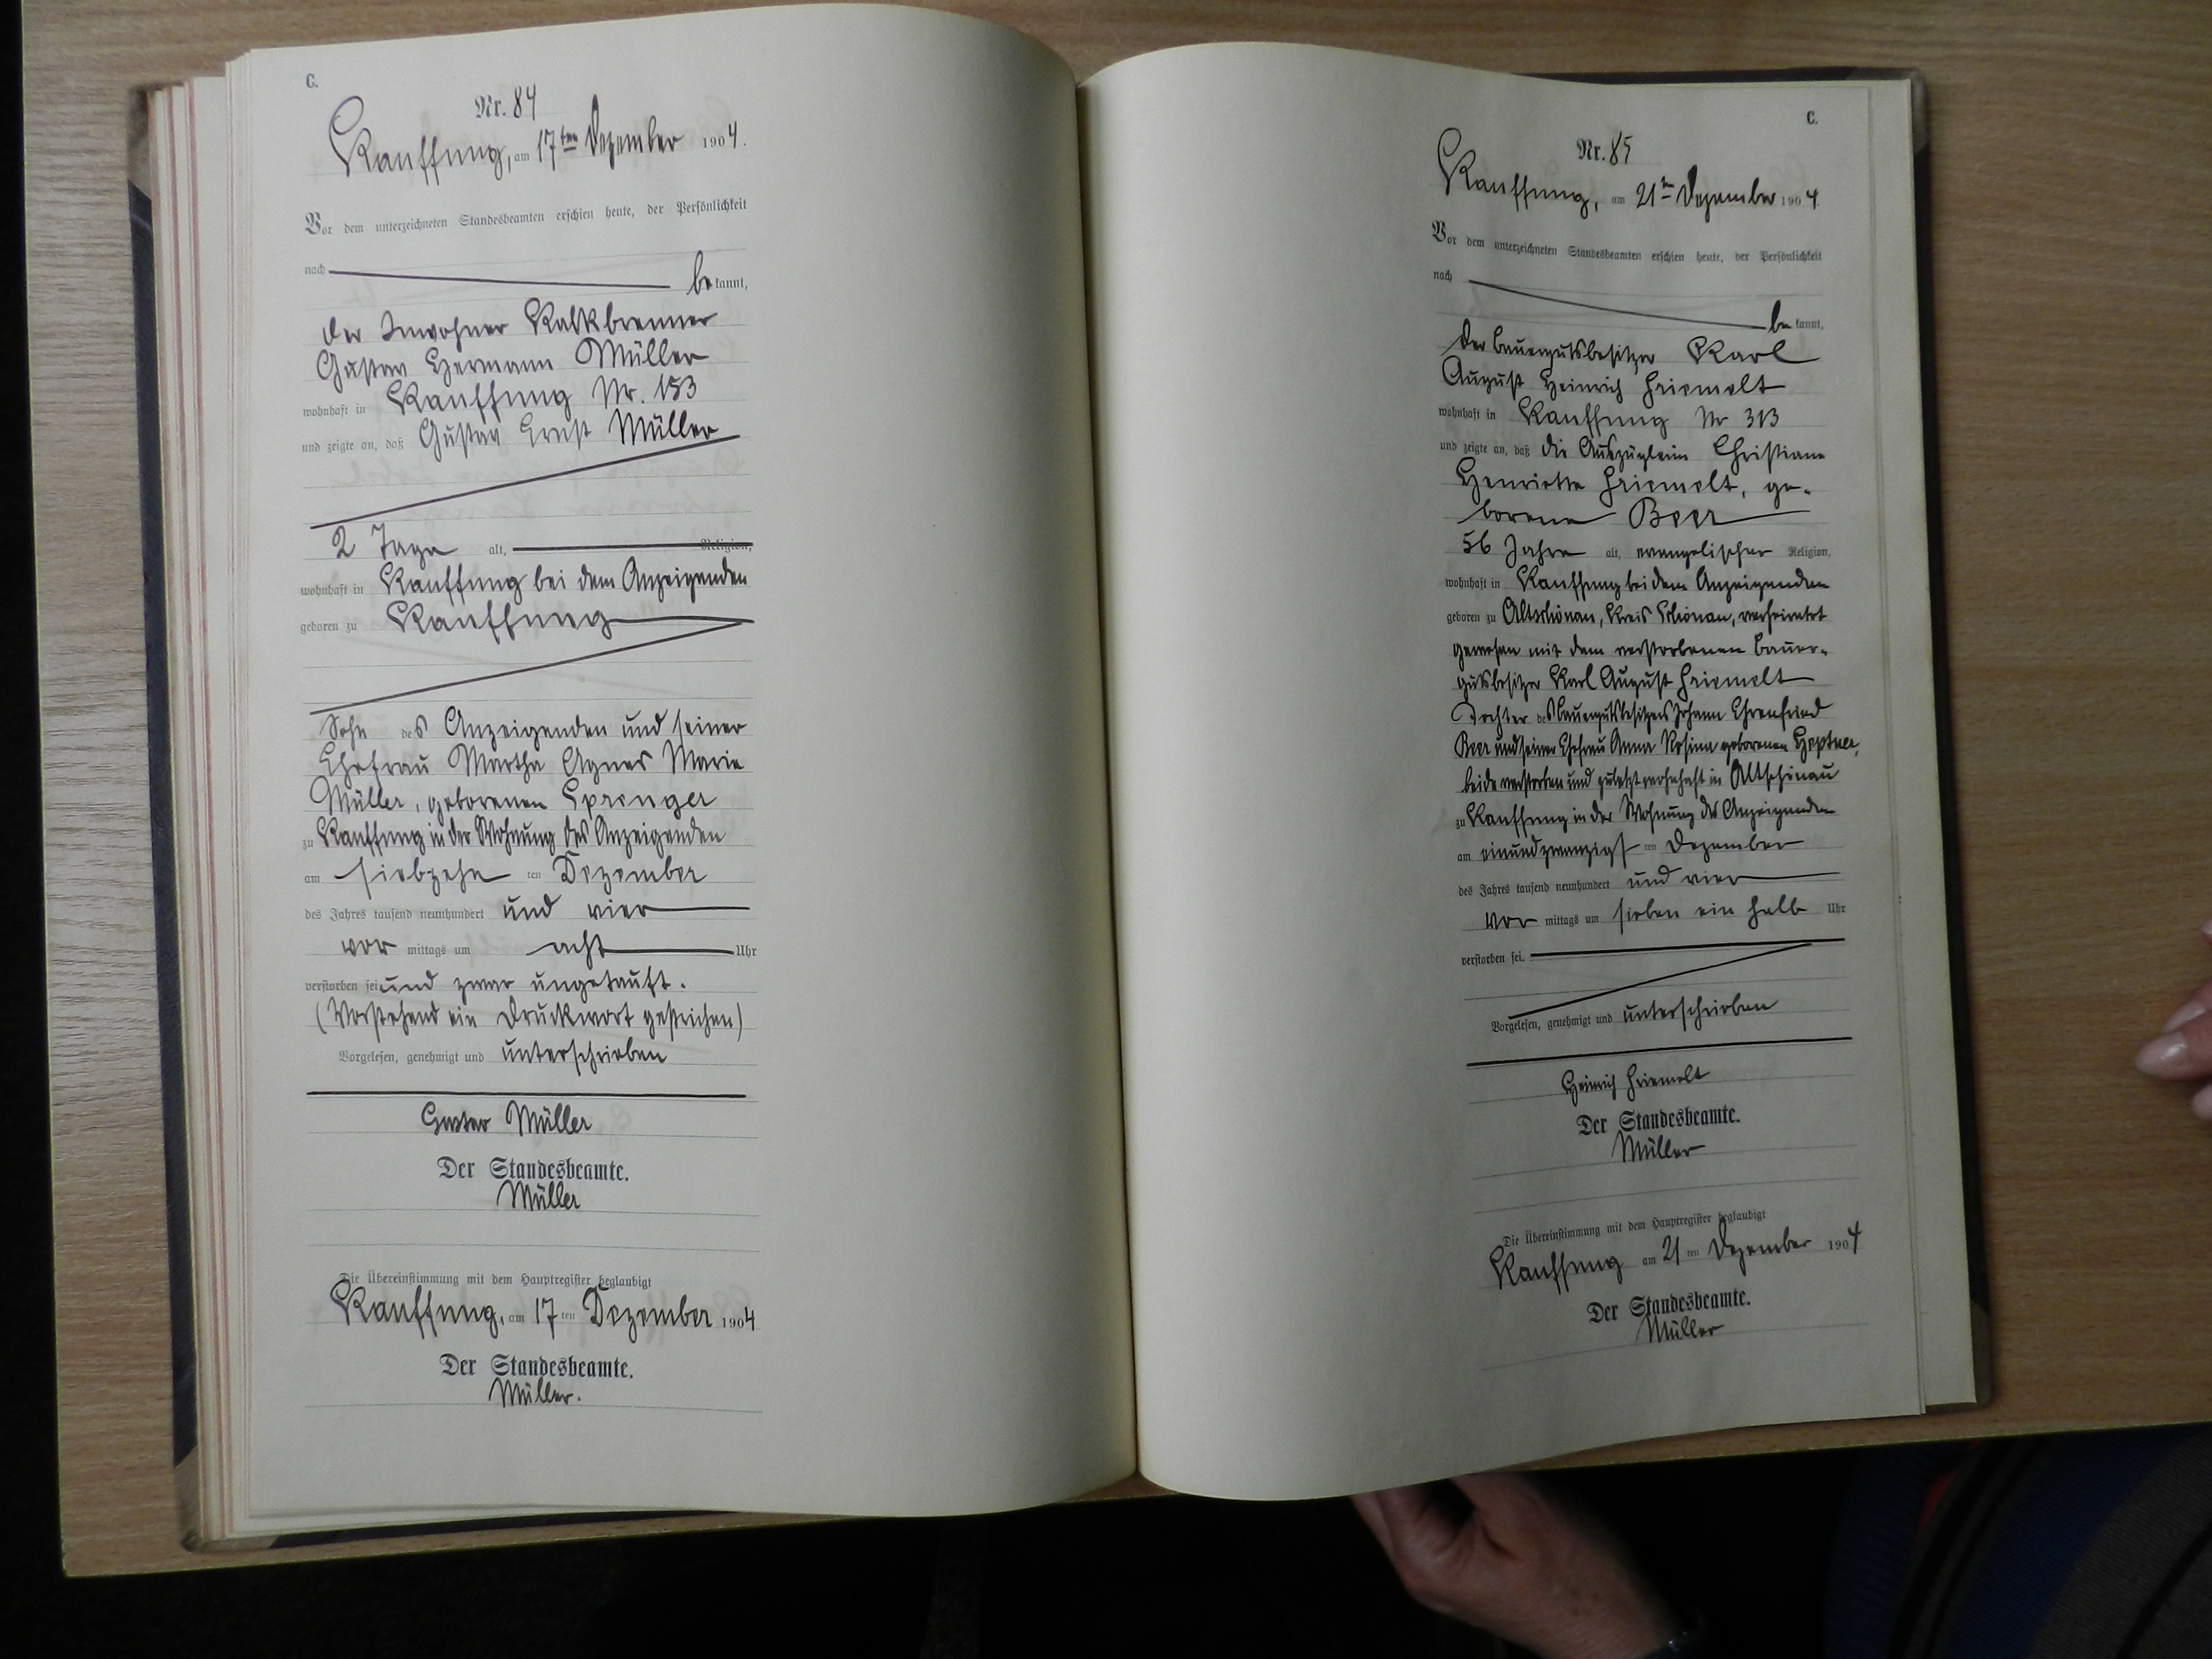 C.
Nr. 84
Kauffung, am 17ten Dezember 1904.
Vor dem unterzeichneten Standesbeamten erschien heute, der Persönlichkeit
nach bekannt,
der Inwohner Kalkbrenner
Gustav Hermann Müller
wohnhaft in Kauffung Nr. 153
und zeigte an, daß Gustav Ernst Müller
2 Tage alt, Religion,
wohnhaft in Kauffung bei dem Anzeigenden
geboren zu Kauffung
Sohn des Anzeigenden und seiner
Ehefrau Martha Agnes Marie
Müller, geborenen Springer
zu Kauffung in der Wohnung des Anzeigenden
am siebzehn ten Dezember
des Jahres tausend neunhundert und vier
vor mittags um acht Uhr
verstorben sei und zwar ungetauft.
(Vorstehend ein Druckwort gestrichen)
Vorgelesen, genehmigt und unterschrieben
Gustav Müller
Der Standesbeamte.
Müller
Die Übereinstimmung mit dem Hauptregister beglaubigt
Kauffung, am 17 ten Dezember 1904
Der Standesbeamte.
Müller.
C.
Nr. 85
Kauffung, am 21ten Dezember 1904
Vor dem unterzeichneten Standesbeamten erschien heute, der Persönlichkeit
nach bekannt,
der Bauergutsbesitzer Karl
August Heinrich Friemelt
wohnhaft in Kauffung Nr 313
und zeigte an, daß die Auszüglerin Christiane
Henriette Friemelt, ge-
borene Beer
56 Jahre alt, evangelischer Religion,
wohnhaft in Kauffung bei dem Anzeigenden
geboren zu Altschönau, Kreis Schönau, verheiratet
gewesen mit dem verstorbenen Bauer-
gutsbesitzer Karl August Friemelt
Tochter des Bauergutsbesitzers Johann Ehrenfried
Beer und seiner Ehefrau Anna Rosina geborenen Heptner,
beide verstorben und zuletzt wohnhaft in Altschönau
zu Kauffung in der Wohnung des Anzeigenden
am einundzwanzigs ten Dezember
des Jahres tausend neunhundert und vier
Vor mittags um sieben ein halb Uhr
verstorben sei.
Vorgelesen, genehmigt und unterschrieben
Heinrich Friemelt
Der Standesbeamte.
Müller
Die Übereinstimmung mit dem Hauptregister beglaubigt
Kauffung am 21 ten Dezember 1904
Der Standesbeamte.
Müller